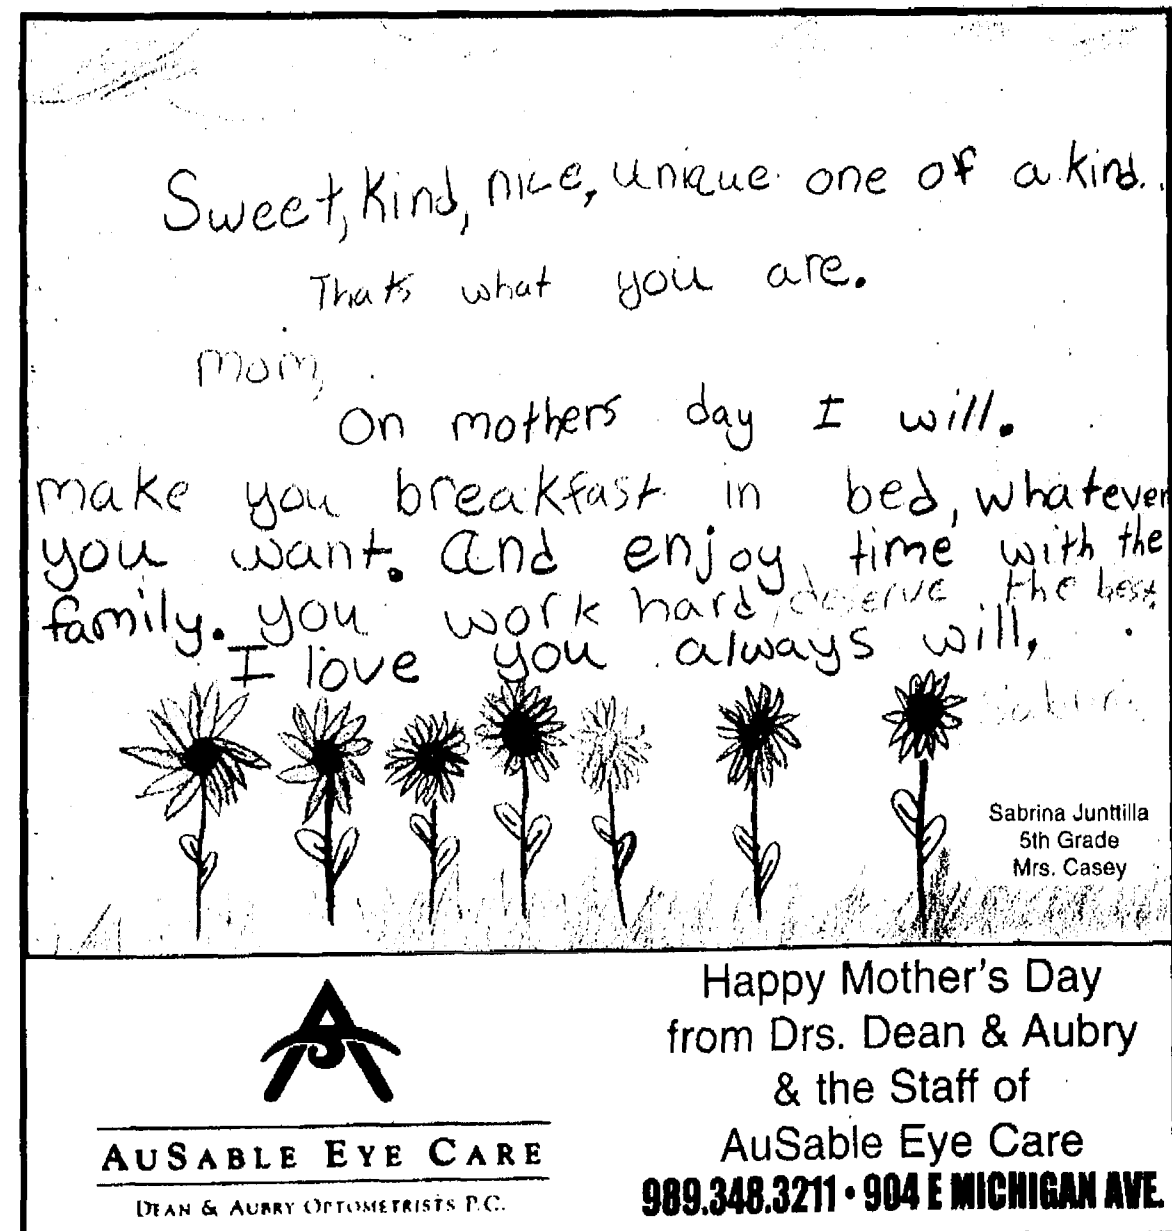 Sweet, Kind, nice, unique one of a kind.
Thats what you are.
Mom,
On mothers day I will.
make you breakfast in bed, whatever
you want. and enjoy time with the
family. you work hard, deserve the best.
I love you always will,
Sabrina
Sabrina Junttilla
5th Grade
Mrs. Casey
AUSABLE EYE CARE
DEAN & AUBRY OPTOMETRISTS P.C.
Happy Mother's Day
from Drs. Dean & Aubry
& the Staff of
AuSable Eye Care
989.348.3211 • 904 E MICHIGAN AVE.